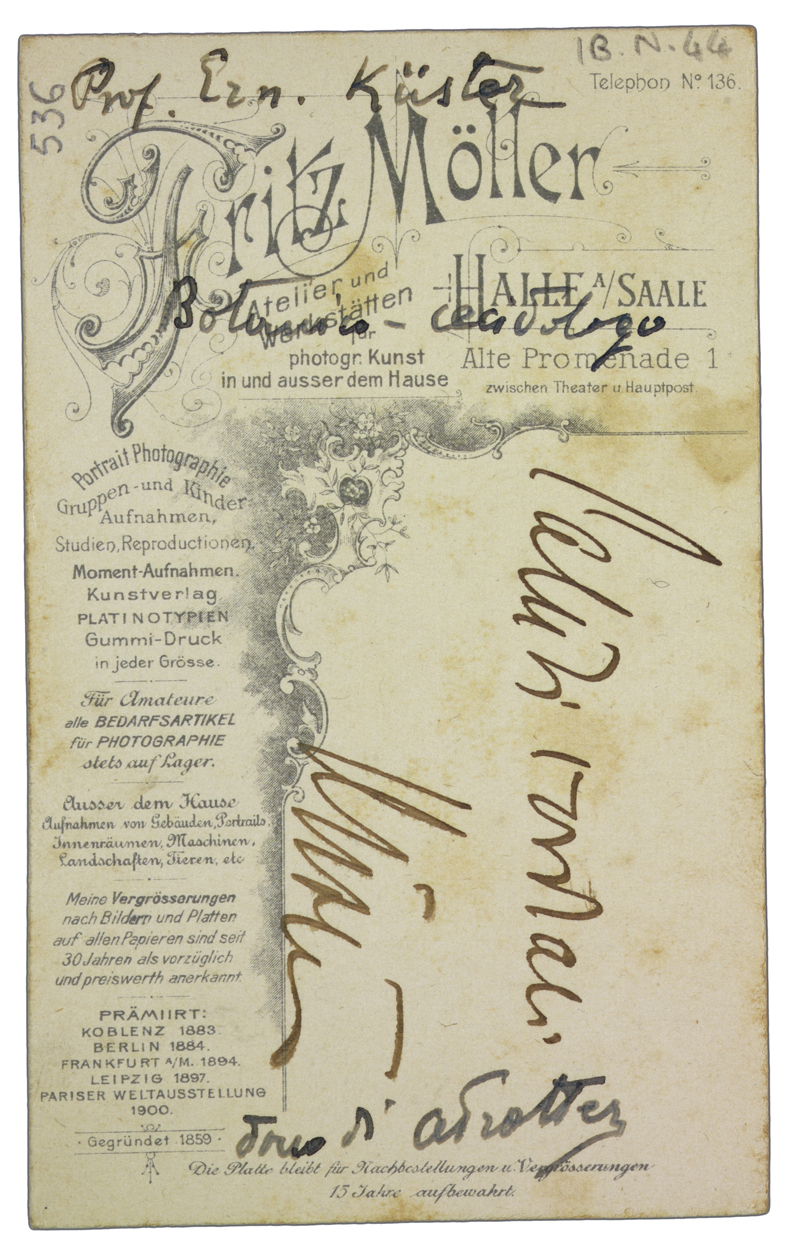 IB.N.44
536
Prof. Ern. Küster
Telephon Nº 136.
Fritz Möller
Atelier und
Werkstätten
für
photogr. Kunst
in und ausser dem Hause
HALLE A/SAALE
Alte Promenade 1
zwischen Theater u. Hauptpost.
Botanico - cecidologo
Portrait Photographie
Gruppen- und Kinder-
Aufnahmen,
Studien, Reproductionen.
Moment-Aufnahmen.
Kunstverlag
PLATINOTYPIEN
Gummi-Druck
in jeder Grösse.
Für Amateure
alle BEDARFSARTIKEL
für PHOTOGRAPHIE
stets auf Lager.
Ausser dem Hause
Aufnahmen von Gebäuden, Portraits,
Innenräumen, Maschinen,
Landschaften, Tieren, etc
Meine Vergrösserungen
nach Bildern und Platten
auf allen Papieren sind seit
30 Jahren als vorzüglich
und preiswerth anerkannt.
PRÄMIIRT:
KOBLENZ 1883.
BERLIN 1884.
FRANKFURT A/M. 1894.
LEIPZIG 1897.
PARISER WELTAUSSTELLUNG
1900.
· Gegründet 1859 ·
Saluti cordiali
Küster
dono di aTrotter
Die Platte bleibt für Nachbestellungen u. Vergrösserungen
15 Jahre aufbewahrt.